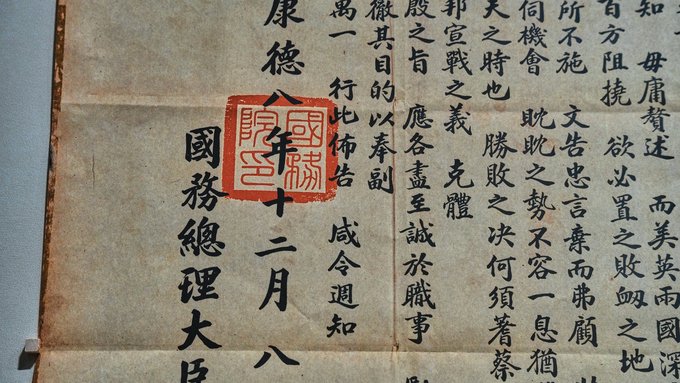 知 毋庸贅述 而美英兩國深
百方阻撓 欲必置之敗衂之地
所不施 文告忠言棄而弗顧
伺機會 眈眈之勢不容一息猶
天之時也 勝敗之决何須蓍蔡
邦宣戰之義 克體
殷之旨 應各盡至誠於職事
徹其目的以奉副
萬一 行此佈告 咸令週知
康德八年十二月八
國務總理大臣
國務
院印